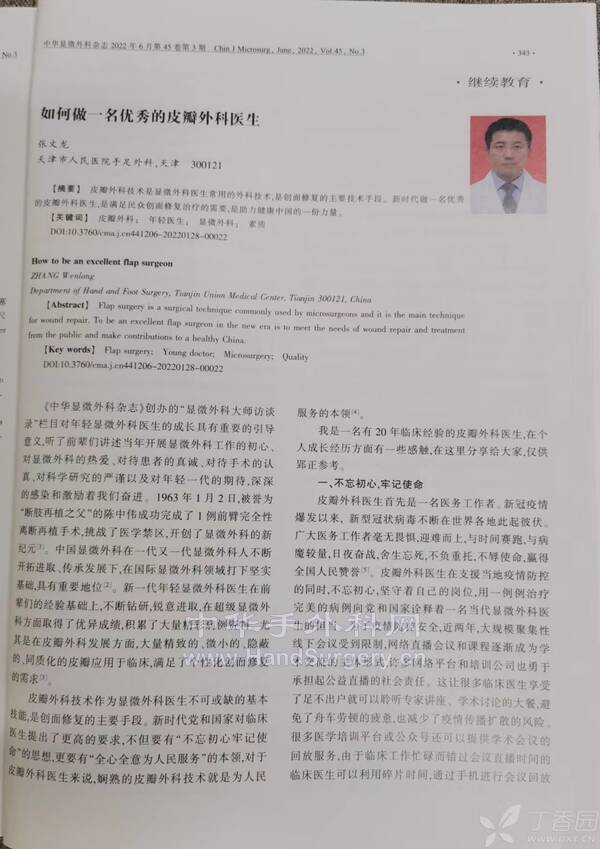 No.3
中华显微外科杂志 2022 年 6 月第 45 卷第 3 期 Chin J Microsurg, June, 2022, Vol.45, No.3
·343·
·继续教育·
如何做一名优秀的皮瓣外科医生
张文龙
天津市人民医院手足外科,天津 300121
【摘要】 皮瓣外科技术是显微外科医生常用的外科技术,是创面修复的主要技术手段。新时代做一名优秀
的皮瓣外科医生,是满足民众创面修复治疗的需要,是助力健康中国的一份力量。
【关键词】 皮瓣外科; 年轻医生; 显微外科; 素质
DOI:10.3760/cma.j.cn441206-20220128-00022
How to be an excellent flap surgeon
ZHANG Wenlong
Department of Hand and Foot Surgery, Tianjin Union Medical Center, Tianjin 300121, China
【Abstract】 Flap surgery is a surgical technique commonly used by microsurgeons and it is the main technique
for wound repair. To be an excellent flap surgeon in the new era is to meet the needs of wound repair and treatment
from the public and make contributions to a healthy China.
【Key words】 Flap surgery; Young doctor; Microsurgery; Quality
DOI:10.3760/cma.j.cn441206-20220128-00022
《中华显微外科杂志》创办的“显微外科大师访谈
录”栏目对年轻显微外科医生的成长具有重要的引导
意义,听了前辈们讲述当年开展显微外科工作的初心、
对显微外科的热爱、对待患者的真诚、对待手术的认
真、对科学研究的严谨以及对年轻一代的期待,深深
的感染和激励着我们奋进。1963 年 1 月 2 日,被誉为
“断肢再植之父”的陈中伟成功完成了 1 例前臂完全性
离断再植手术,挑战了医学禁区,开创了显微外科的新
纪元[1]。中国显微外科在一代又一代显微外科人不断
开拓进取、传承发展下,在国际显微外科领域打下坚实
基础,具有重要地位[2]。新一代年轻显微外科医生在前
辈们的经验基础上,不断钻研,锐意进取,在超级显微外
科方面取得了优异成绩,积累了大量精彩病例资料。尤
其是在皮瓣外科发展方面,大量精致的、微小的、隐蔽
的、同质化的皮瓣应用于临床,满足了个性化创面修复
的需求[3]。
皮瓣外科技术作为显微外科医生不可或缺的基本
技能,是创面修复的主要手段。新时代党和国家对临床
医生提出了更高的要求,不但要有“不忘初心牢记使
命”的思想,更要有“全心全意为人民服务”的本领,对于
皮瓣外科医生来说,娴熟的皮瓣外科技术就是为人民
服务的本领[4]。
我是一名有 20 年临床经验的皮瓣外科医生,在个
人成长经历方面有一些感触,在这里分享给大家,仅供
郢正参考。
一、不忘初心,牢记使命
皮瓣外科医生首先是一名医务工作者。新冠疫情
爆发以来, 新型冠状病毒不断在世界各地此起彼伏。
广大医务工作者毫无畏惧,迎难而上,与时间赛跑,与病
魔较量,日夜奋战,舍生忘死,不负重托,不辱使命,赢得
全国人民赞誉[5]。皮瓣外科医生在支援当地疫情防控
的同时,不忘初心,坚守着自己的岗位,用一例例治疗
完美的病例向党和国家诠释着一名当代显微外科医
生的
安全,近两年,大规模聚集性
线下会议受到限制,网络直播会议和课程逐渐成为学
网络平台和培训公司也勇于
承担起公益直播的社会责任。这让很多临床医生享受
了足不出户就可以聆听专家讲座、学术讨论的大餐,避
免了舟车劳顿的疲惫,也减少了疫情传播扩散的风险。
很多医学培训平台或公众号还可以提供学术会议的
回放服务,由于临床工作忙碌而错过会议直播时间的
临床医生可以利用碎片时间,通过手机进行会议回放
中华手外科网
www.HandSurgery.cn
丁香园
WWW.DXY.CN